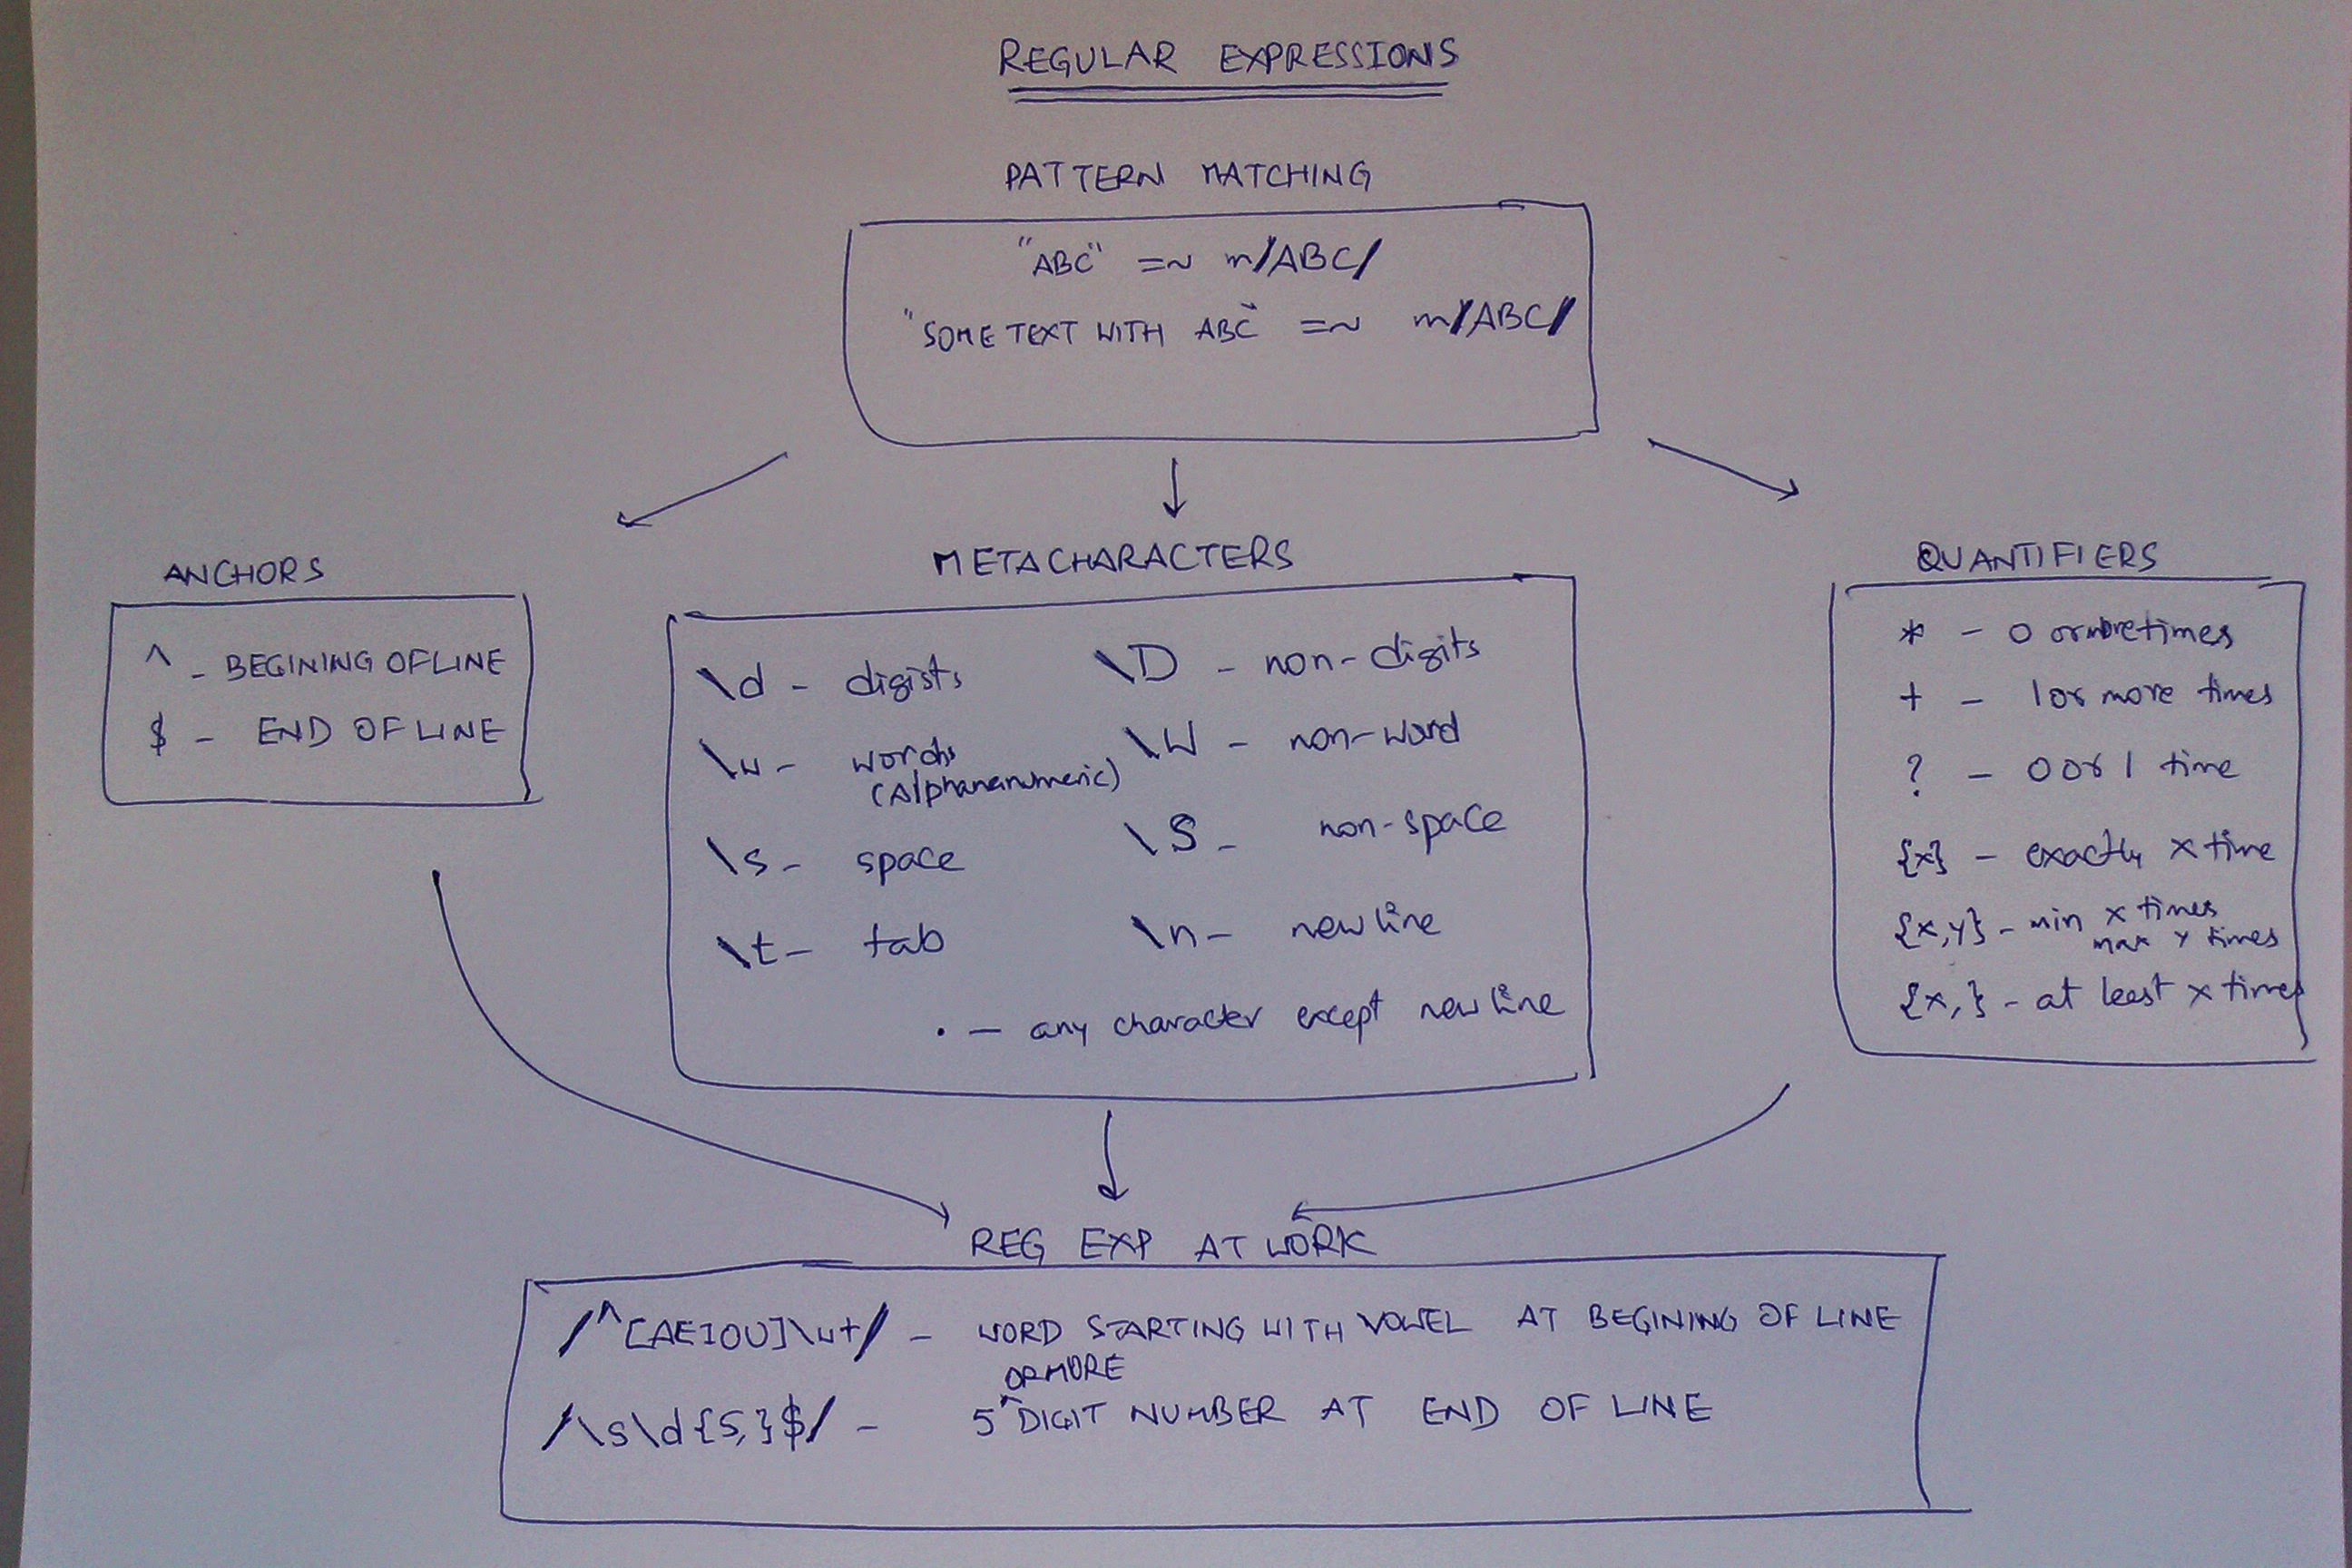 REGULAR EXPRESSIONS
PATTERN MATCHING
"ABC" =~ m/ABC/
"SOME TEXT WITH ABC" =~ m/ABC/
ANCHORS
^ - BEGINING OF LINE
$ - END OF LINE
METACHARACTERS
\d - digists \D - non-digits
\w - words \W - non-word
(Alphananumeric)
\s - space \S - non-space
\t - tab \n - new line
. - any character except new line
QUANTIFIERS
* - 0 or more times
+ - 1 or more times
? - 0 or 1 time
{x} - exactly x time
{x,y} - min x times
max y times
{x,} - at least x times
REG EXP AT WORK
/^[AEIOU]\w+/ - WORD STARTING WITH VOWEL AT BEGINING OF LINE
OR MORE
/\s\d{5,}$/ - 5^DIGIT NUMBER AT END OF LINE